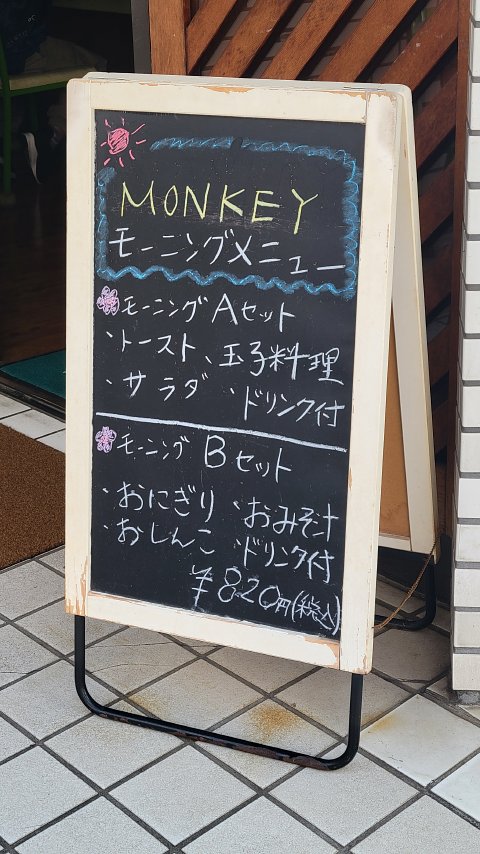 MONKEY
モーニングメニュー
モーニング Aセット
・トースト ・玉子料理
・サラダ ・ドリンク付
モーニング Bセット
・おにぎり ・おみそ汁
・おしんこ ・ドリンク付
¥820円(税込)